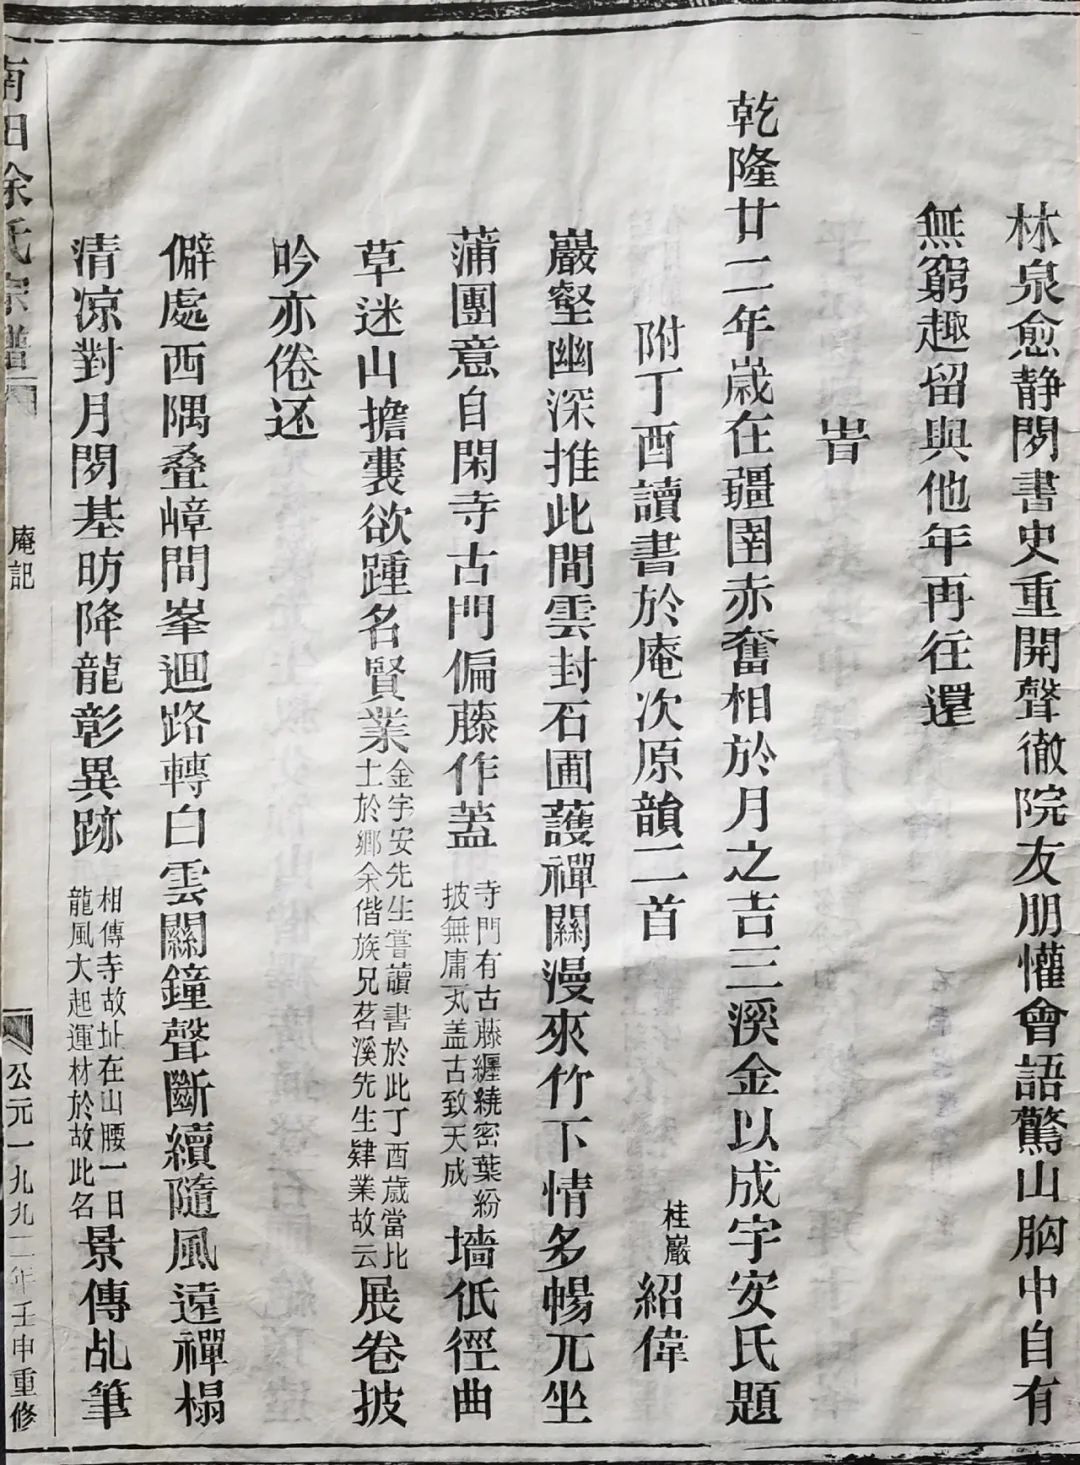 林泉愈静閱書史重開聲徹院友朋懽會語驚山胸中自有
無窮趣留與他年再往還
旹
乾隆廿二年歲在疆圉赤奮相於月之吉三溪金以成宇安氏題
附丁酉讀書於庵次原韻二首
桂巖
紹偉
巖壑幽深推此間雲封石圃護禪關漫來竹下情多暢兀坐
蒲團意自閑寺古門偏藤作蓋
寺門有古藤纏繞密葉紛
披無庸一𠀋盖古致天成
墻低徑曲
草迷山擔囊欲踵名賢業
金宇安先生嘗讀書於此丁酉歲當比
士於鄉余偕族兄茗溪先生肄業故云
展卷披
吟亦倦还
僻處西隅叠嶂間峯迴路轉白雲關鐘聲斷續隨風遠禪榻
清凉對月閑基昉降龍彰異跡
相傳寺故址在山腰一日
龍風大起運材於故此名
景傳乩筆
南田徐氏宗譜
庵記
公元一九九二年壬申重修